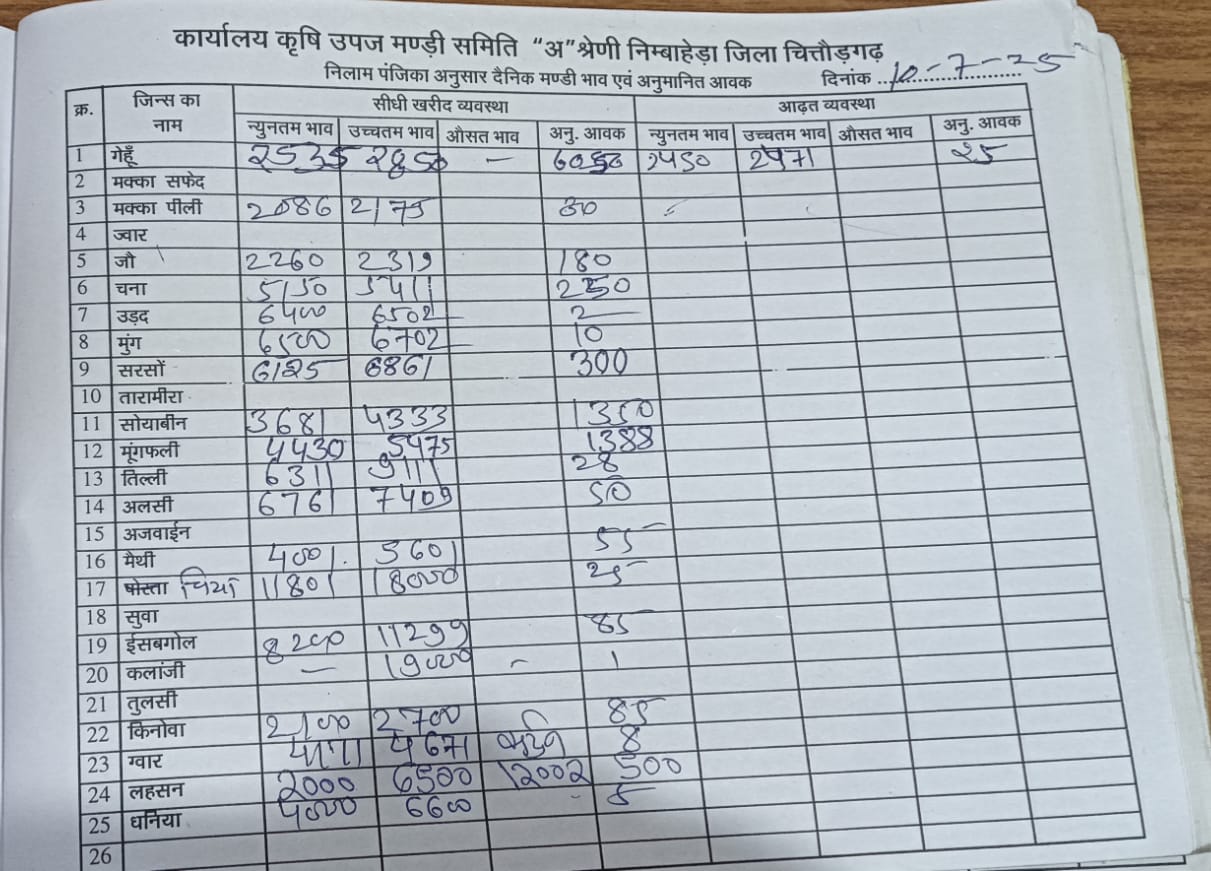 कार्यालय कृषि उपज मण्ड़ी समिति "अ"श्रेणी निम्बाहेड़ा जिला चित्तौड़गढ़
निलाम पंजिका अनुसार दैनिक मण्डी भाव एवं अनुमानित आवक दिनांक 10-7-25
क्र. जिन्स का नाम सीधी खरीद व्यवस्था आढ़त व्यवस्था
न्युनतम भाव उच्चतम भाव औसत भाव अनु. आवक न्युनतम भाव उच्चतम भाव औसत भाव अनु. आवक
1 गेहूँ 2535 2850 - 6050 2450 2471 25
2 मक्का सफेद
3 मक्का पीली 2086 2175 30
4 ज्वार
5 जौ 2260 2319 180
6 चना 5150 5411 250
7 उड़द 6400 6502 2
8 मुंग 6500 6702 10
9 सरसों 6125 6861 300
10 तारामीरा
11 सोयाबीन 3681 4333 1350
12 मूंगफली 4430 5475 1388
13 तिल्ली 6311 9111 28
14 अलसी 6761 7409 50
15 अजवाईन
16 मैथी 4001 5601 55
17 पोस्ता चिया 11801 18000 25
18 सुवा
19 ईसबगोल 8200 11299 85
20 कलांजी - 19000 - 1
21 तुलसी
22 किनोवा 2100 2700 85
23 ग्वार 4171 4671 8
24 लहसन 2000 6500 12002 500
25 धनिया 4000 6600 5
26